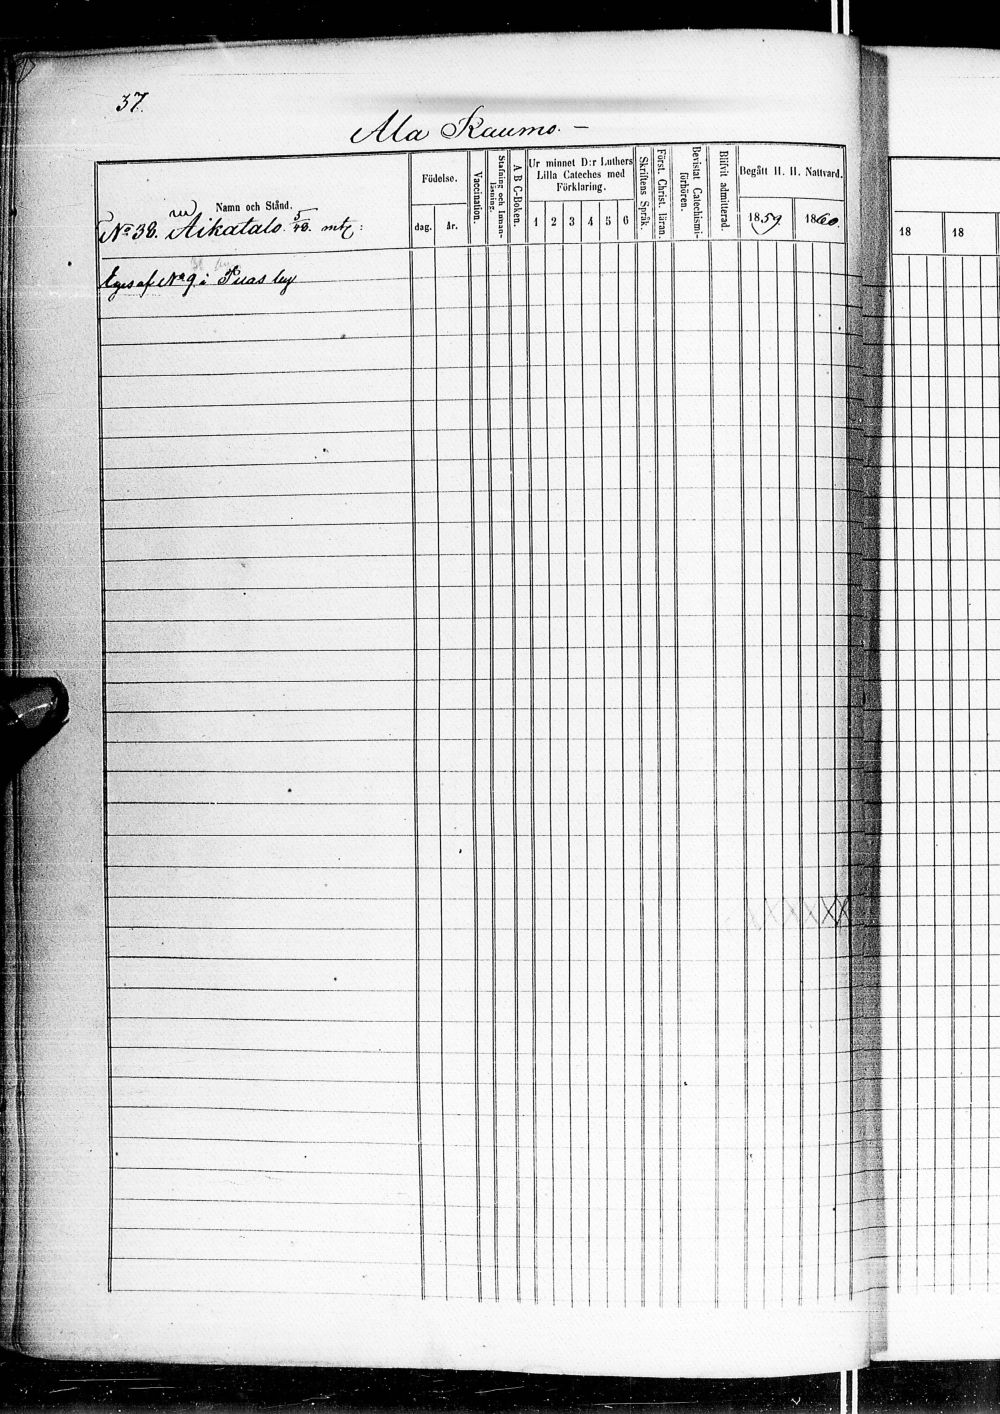 37.
Ala Kaumo. —
Namn och Stånd.
Födelse.
dag. år.
Vaccination.
Stafning och Innan-läsning.
A B C-Boken.
Ur minnet D:r Luthers
Lilla Cateches med
Förklaring.
1 2 3 4 5 6
Skriftens Språk.
Först. Christ. läran.
Bevistat Catechismi-förhören.
Blifvit admitterad.
Begått H. H. Nattvard.
1859. 1860.
18 18
No 38. Aikatalo 5/48. mtl:
Eges af No 9 i Puas by